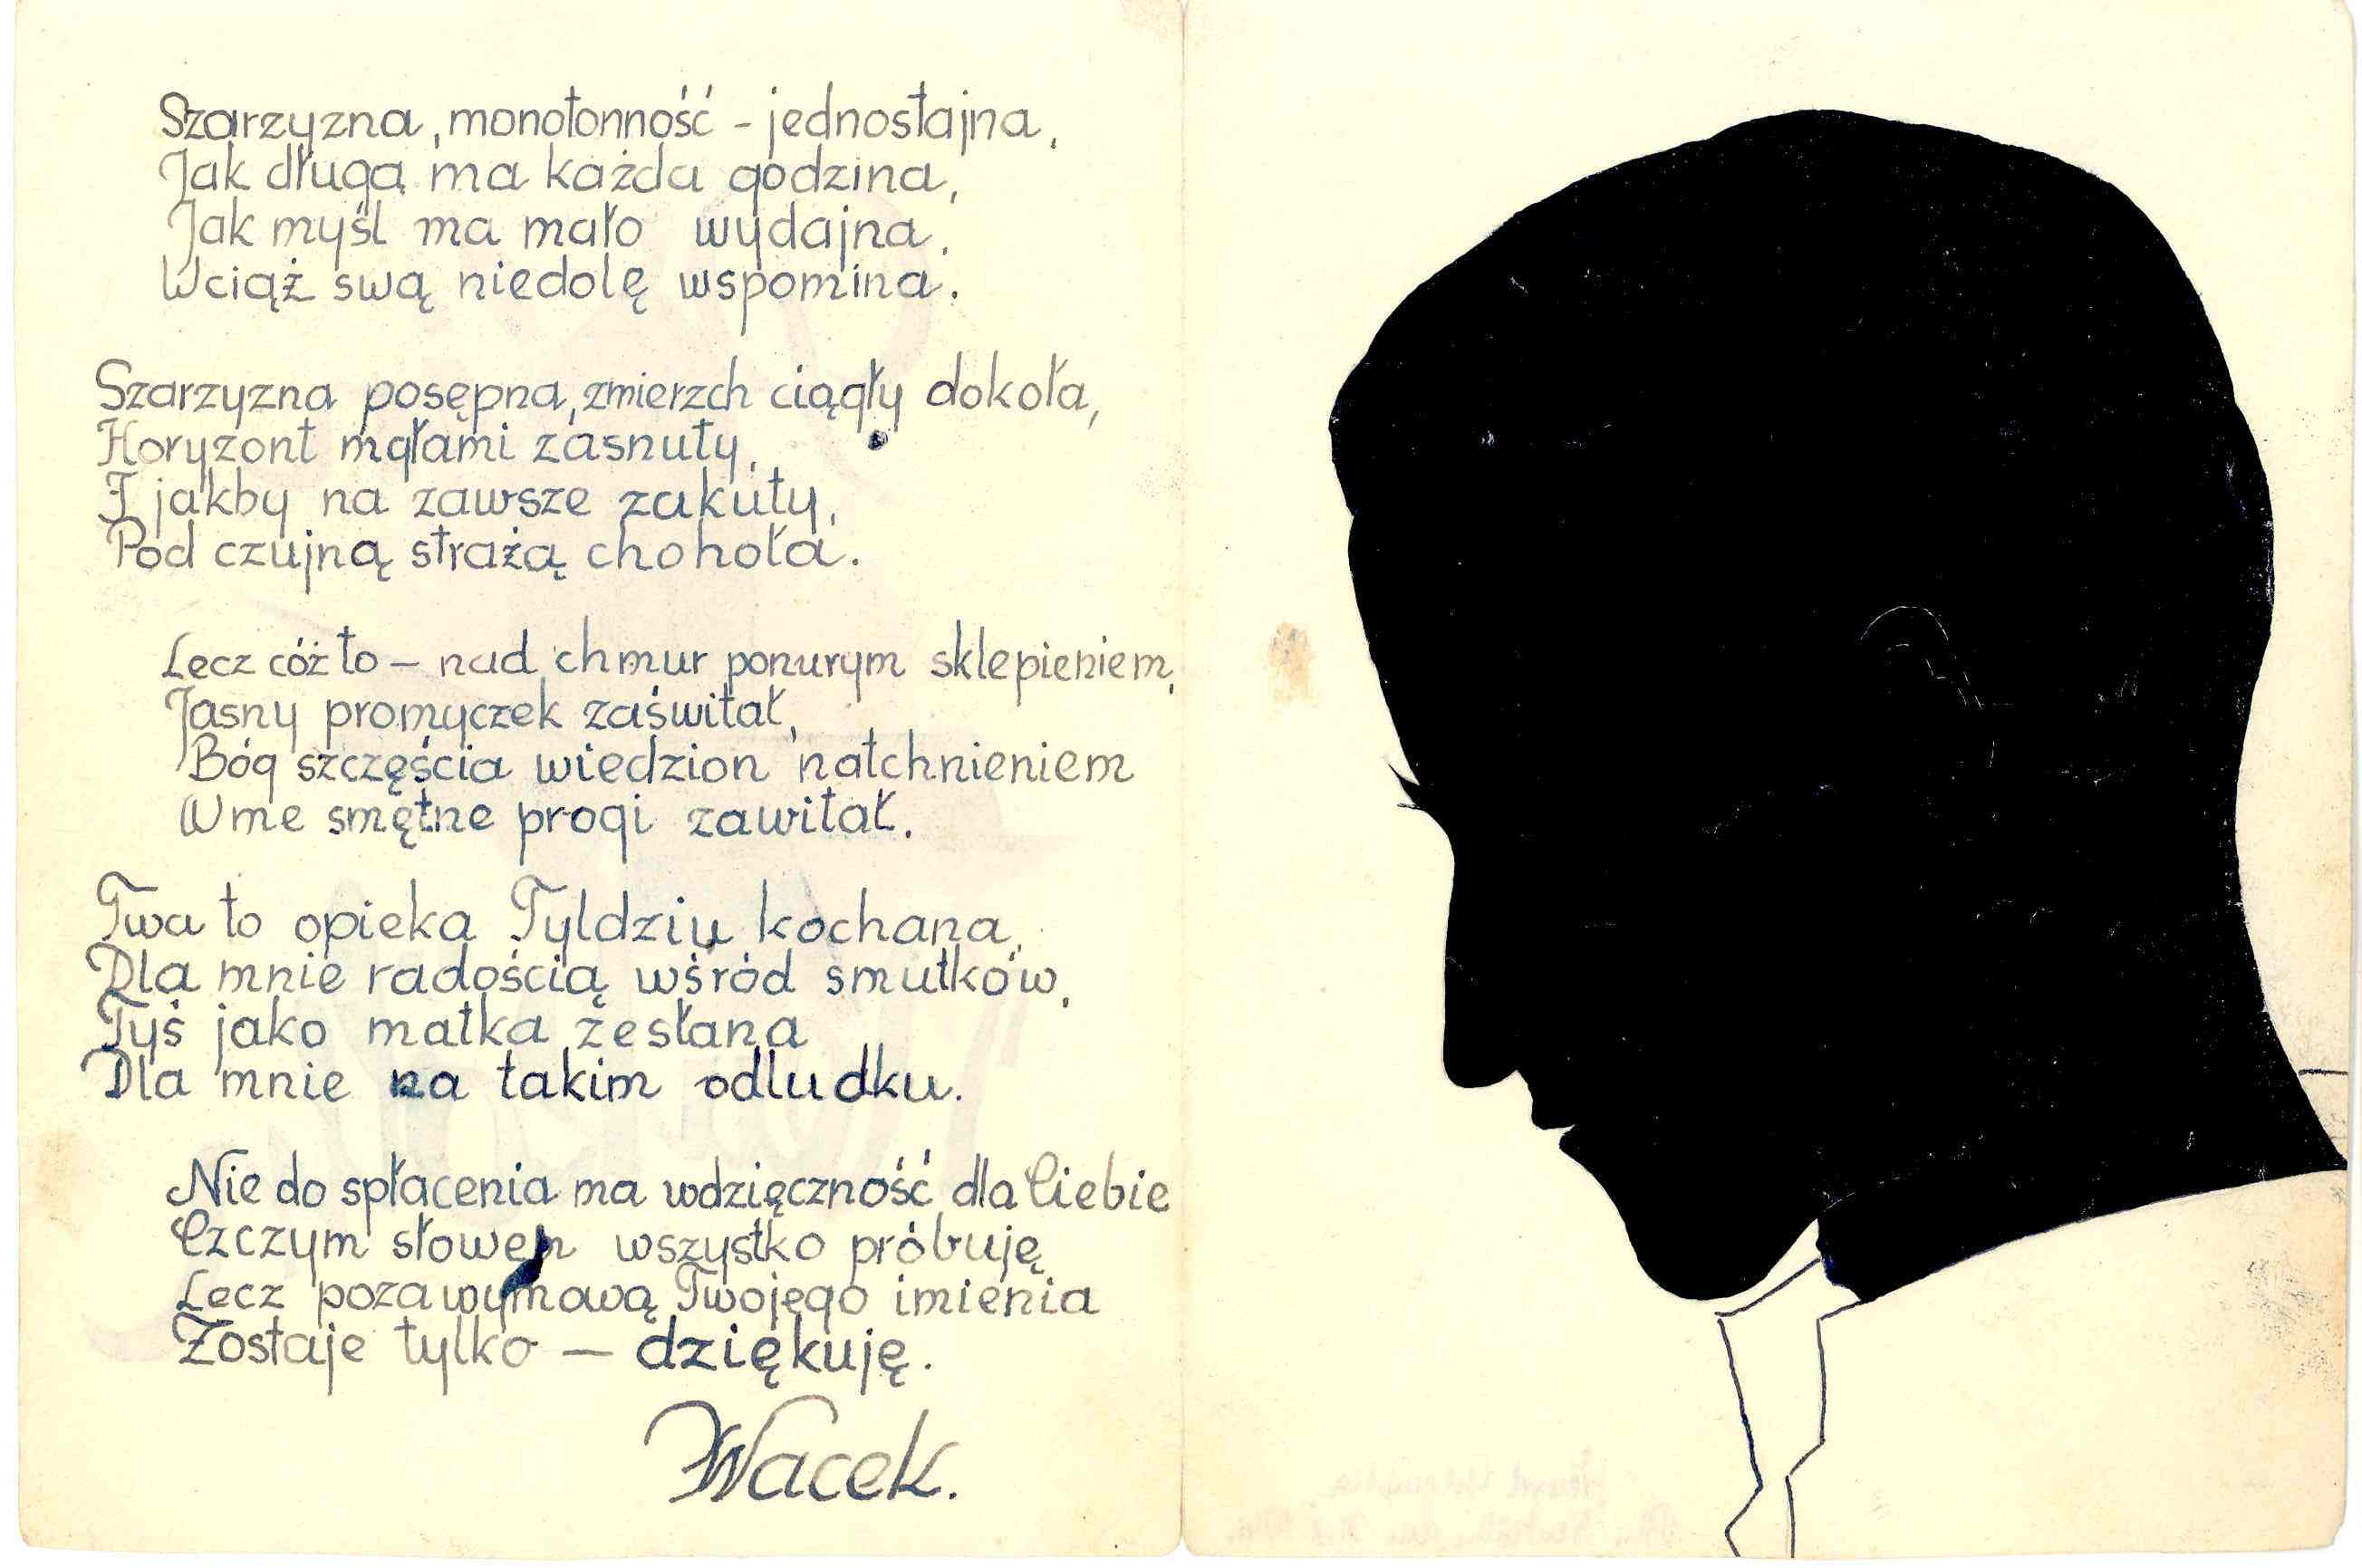 Szarzyzna, monotonność - jednostajna,
Jak długą ma każda godzina,
Jak myśl ma mało wydajna,
Wciąż swą niedolę wspomina.
Szarzyzna posępna, zmierzch ciągły dokoła,
Horyzont mgłami zasnuty,
I jakby na zawsze zakuty,
Pod czujną strażą chohoła.
Lecz cóż to – nad chmur ponurym sklepieniem,
Jasny promyczek zaświtał,
Bóg szczęścia wiedzion natchnieniem
W me smętne progi zawitał.
Twa to opieka Tyldziu kochana,
Dla mnie radością wśród smutków,
Tyś jako matka zesłana
Dla mnie na takim odludku.
Nie do spłacenia ma wdzięczność dla Ciebie
Czczym słowem wszystko próbuję
Lecz poza wymową Twojego imienia
Zostaje tylko – dziękuję.
Wacek.